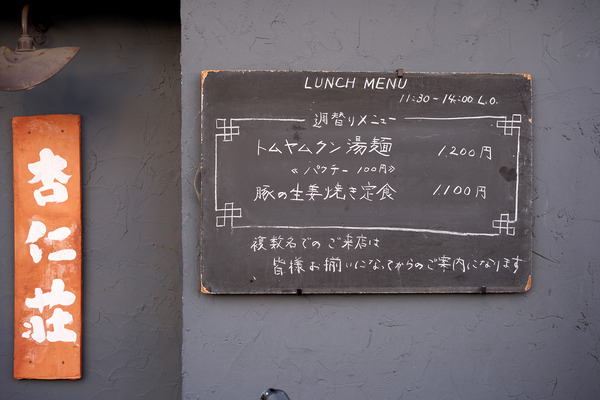 杏仁荘
LUNCH MENU
11:30-14:00 L.O.
週替りメニュー
トムヤムクン湯麺 1,200円
《パクチー 100円》
豚の生姜焼き定食 1,100円
複数名でのご来店は
皆様お揃いになってからのご案内になります